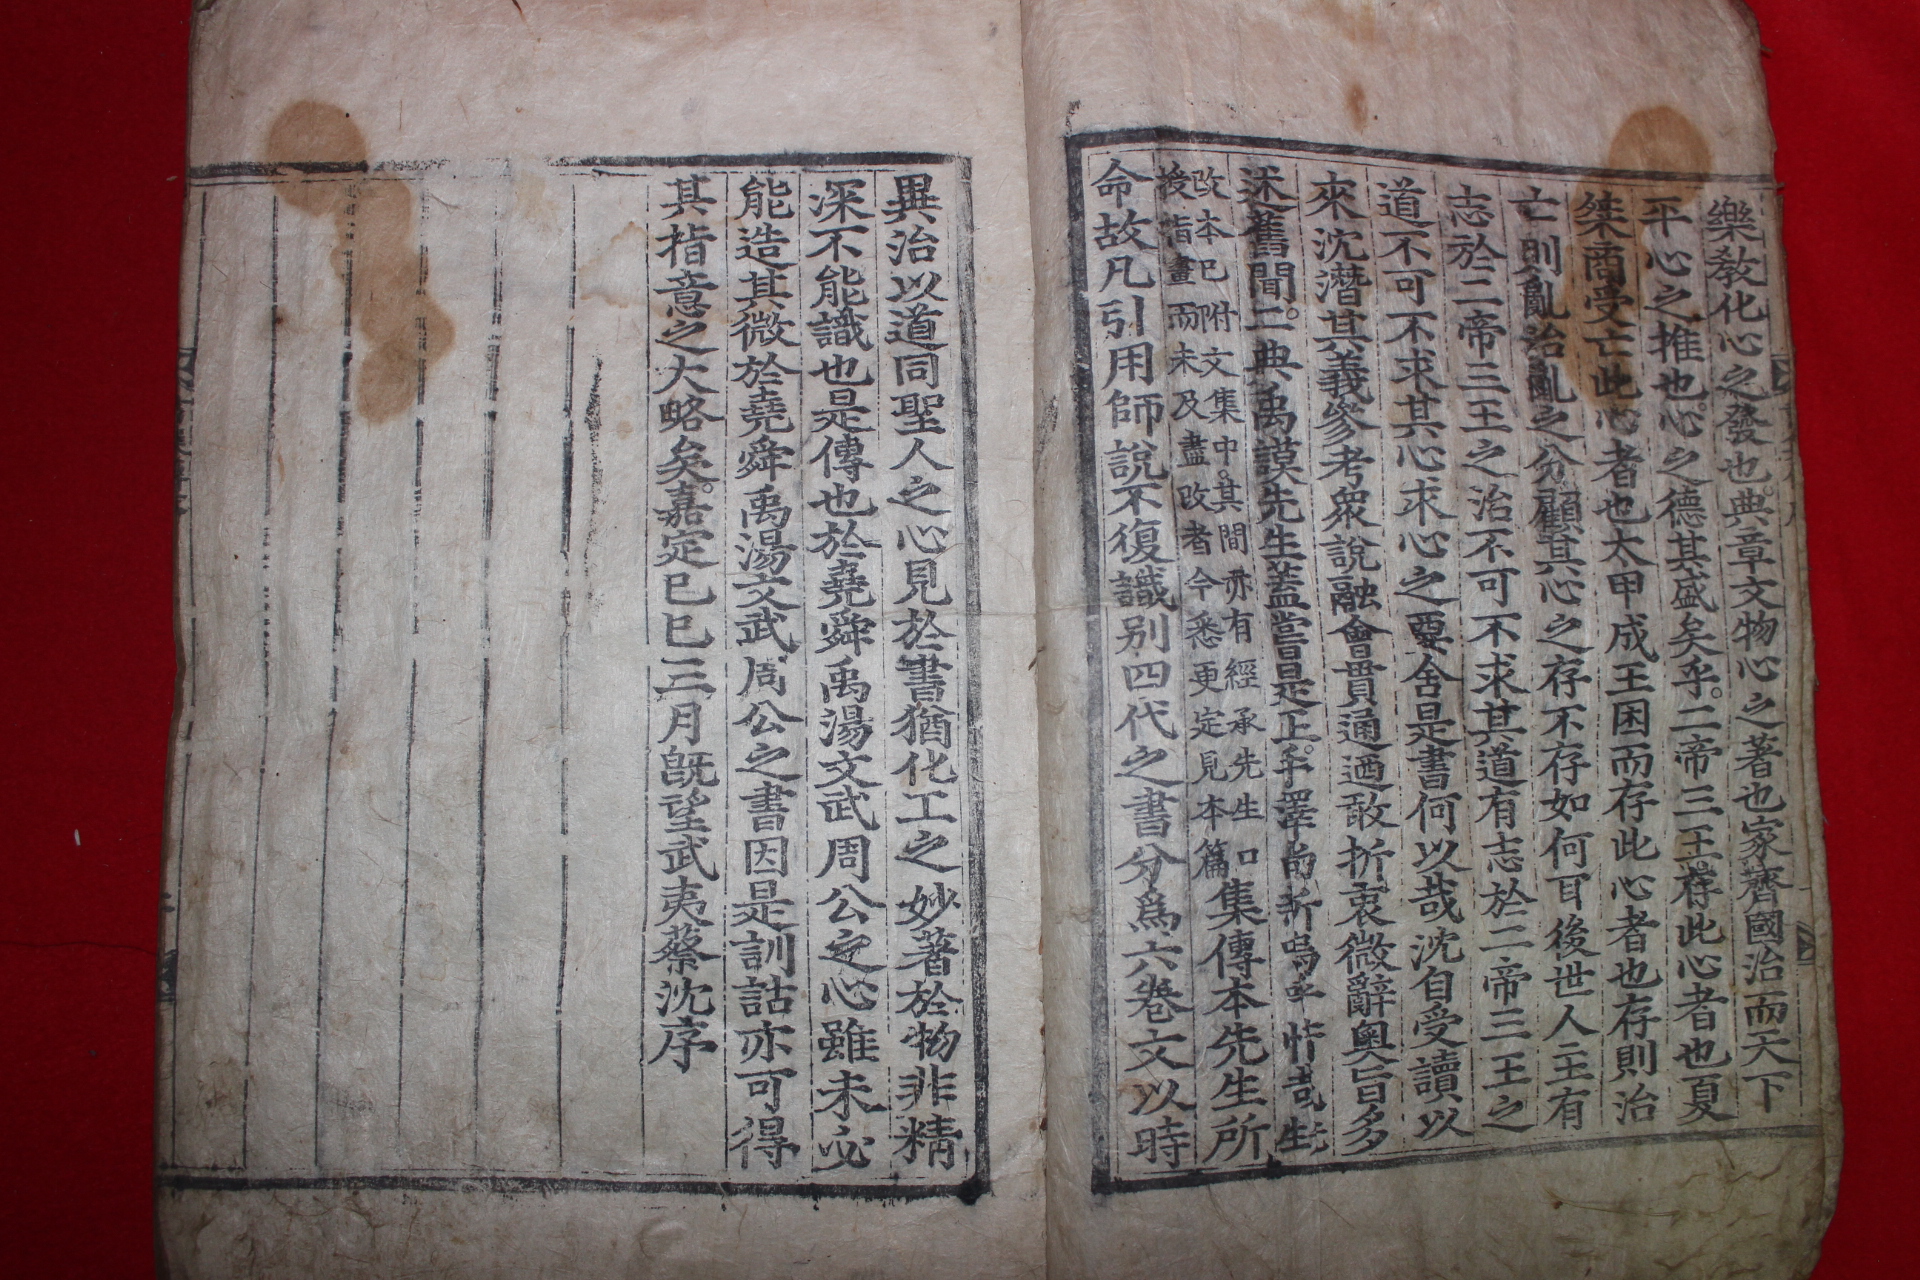 樂敎化心之發也典章文物心之著也家齊國治而天下
平心之推也心之德其盛矣乎二帝三王存此心者也夏
桀商受亡此心者也太甲成王困而存此心者也存則治
亡則亂治亂之分顧其心之存不存如何耳後世人主有
志於二帝三王之治不可不求其道有志於二帝三王之
道不可不求其心求心之要舍是書何以哉沈自受讀以
來沈潛其義參考衆說融會貫通迺敢折衷微辭奧旨多
述舊聞二典禹謨先生蓋嘗是正手澤尚新嗚乎惜哉先生
改本已附文集中其間亦有經承先生口
授指畫而未及盡改者今悉更定見本篇
集傳本先生所
命故凡引用師說不復識別四代之書分爲六卷文以時
異治以道同聖人之心見於書猶化工之妙著於物非精
深不能識也是傳也於堯舜禹湯文武周公之心雖未必
能造其微於堯舜禹湯文武周公之書因是訓詁亦可得
其指意之大略矣嘉定己巳三月旣望武夷蔡沈序